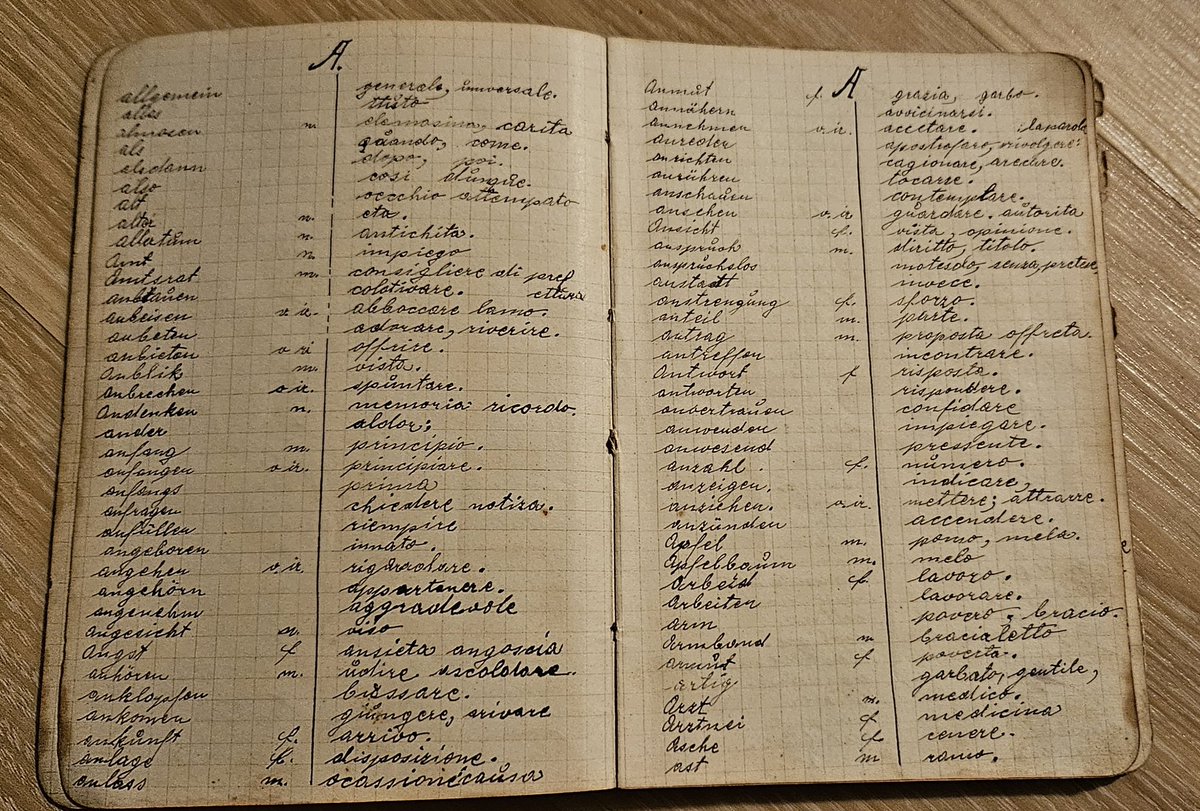 A.
allgemein generale, universale.
alles tutto
almosen n. elemosina, carita
als quando, come.
alsdann dopo, poi.
also cosi dungue.
alt vecchio attempato
alter n. eta.
altertum n. antichita.
Amt n. impiego
Amtsrat m. consigliere di pref
anbauen coltivare. ettura
anbeisen v. ir. abboccare lamo.
anbeten adorare, riverire.
anbieten v. ir. offrire.
Anblik m. vista.
anbrechen v. ir. spuntare.
Andenken n. memoria ricordo.
ander
anfang m. principio.
anfangen v. ir. principiare.
anfangs prima
anfragen chiedere notiza.
anfüllen riempire
angeboren innato.
angehen v. ir.
angehörn appartenere.
angenehm aggradevole
angesicht n. viso
Angst f. ansieta angoscia
anhören m. udire
anklopfen bussare.
ankomen giungere, arivare
ankunft f. arrivo.
anlage f. disposizione.
anlass m. ocassione causa
A
Anmut f. grazia, garbo.
annähern avvicinarsi.
annehmen v. ir. accetare. :la parola
anreden apostrofare, rivolgere:
anrichten cagionare, aredire.
anrühren tocarse.
anschauen contemplare.
ansehen v. ir. guardare. autorita
Ansicht f. vista, opinione.
anspruch m. diritto, titolo.
anspruchslos motesdo, senza pretese
anstatt invece.
anstrengung f. sforzo.
anteil m. parte.
antrag m. proposta offreta.
antreffen incontrare.
Antwort f risposta.
antworten rispondere.
anvertrauen confidare
anwenden impiegare.
anwesend pressente.
anzahl. f. numero.
anzeigen. indicare,
anziehen. v. ir. mettere; attrarre.
anzünden accendere.
Apfel m. pomo, mela.
Apfelbaum m. melo
Arbeid f. lavoro.
Arbeiten lavorare.
arm povero. bracio.
Armband m. bracialetto
armut f. poverta.
artig garbato, gentile,
Arzt m. medico.
Arztnei f. medicina
Asche f. cenere.
ast m ramo.